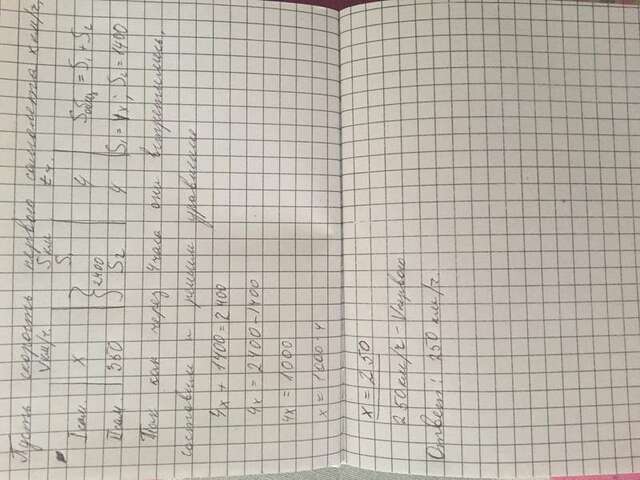 Пусть скорость первого самолета x км/г,
V км/г S км t ч.
I сам. x S₁ 4 Sобщ = S₁ + S₂
2400
II сам 350 S₂ 4 S₁ = 4x; S₂ = 1400
Так как через 4 часа они встретились,
составим и решим уравнение
4x + 1400 = 2400
4x = 2400 - 1400
4x = 1000
x = 1000 : 4
x = 250
250 км/г - V первого
Ответ: 250 км/г.